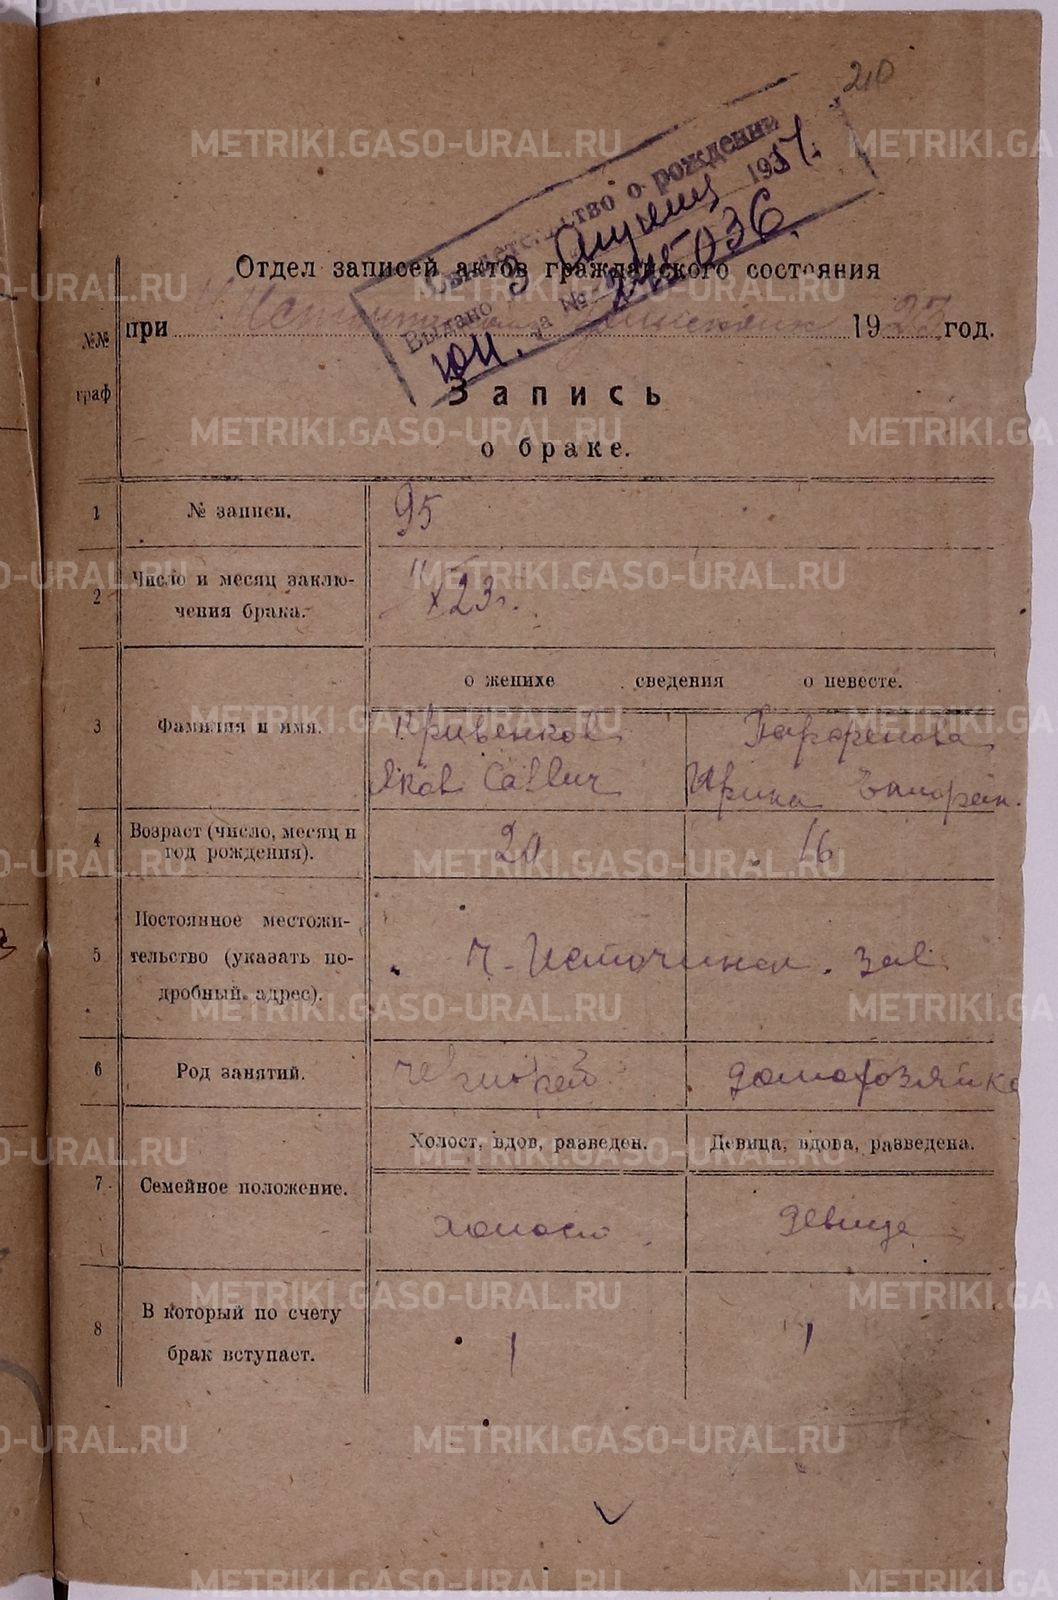 210
Свидетельство о рождении
Выдано 3 1957г.
юи. за № 245036.
Отдел записей актов гражданского состояния
при 1923 год.
№№
граф
Запись
о браке.
1 № записи. 95
2 Число и месяц заключения брака. 11/X 23г.
о женихе сведения о невесте.
3 Фамилия и имя.
Кривенков Парфенова
Яков Саввич Ирина
4 Возраст (число, месяц и год рождения). 20 16
5 Постоянное местожительство (указать подробный адрес). Н-Исетский зав
6 Род занятий. домохозяйка
Холост, вдов, разведен. Девица, вдова, разведена.
7 Семейное положение. холост девица
8 В который по счету брак вступает. 1 1
METRIKI.GASO-URAL.RU